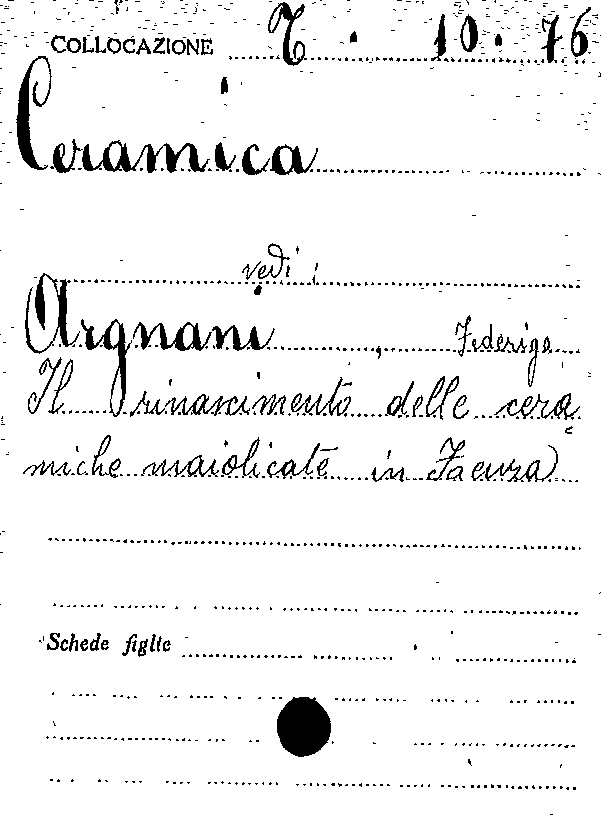 COLLOCAZIONE 7. 10. 76
Ceramica
vedi:
Argnani, Federigo
Il rinascimento delle cera
miche maiolicate in Faenza
Schede figlie